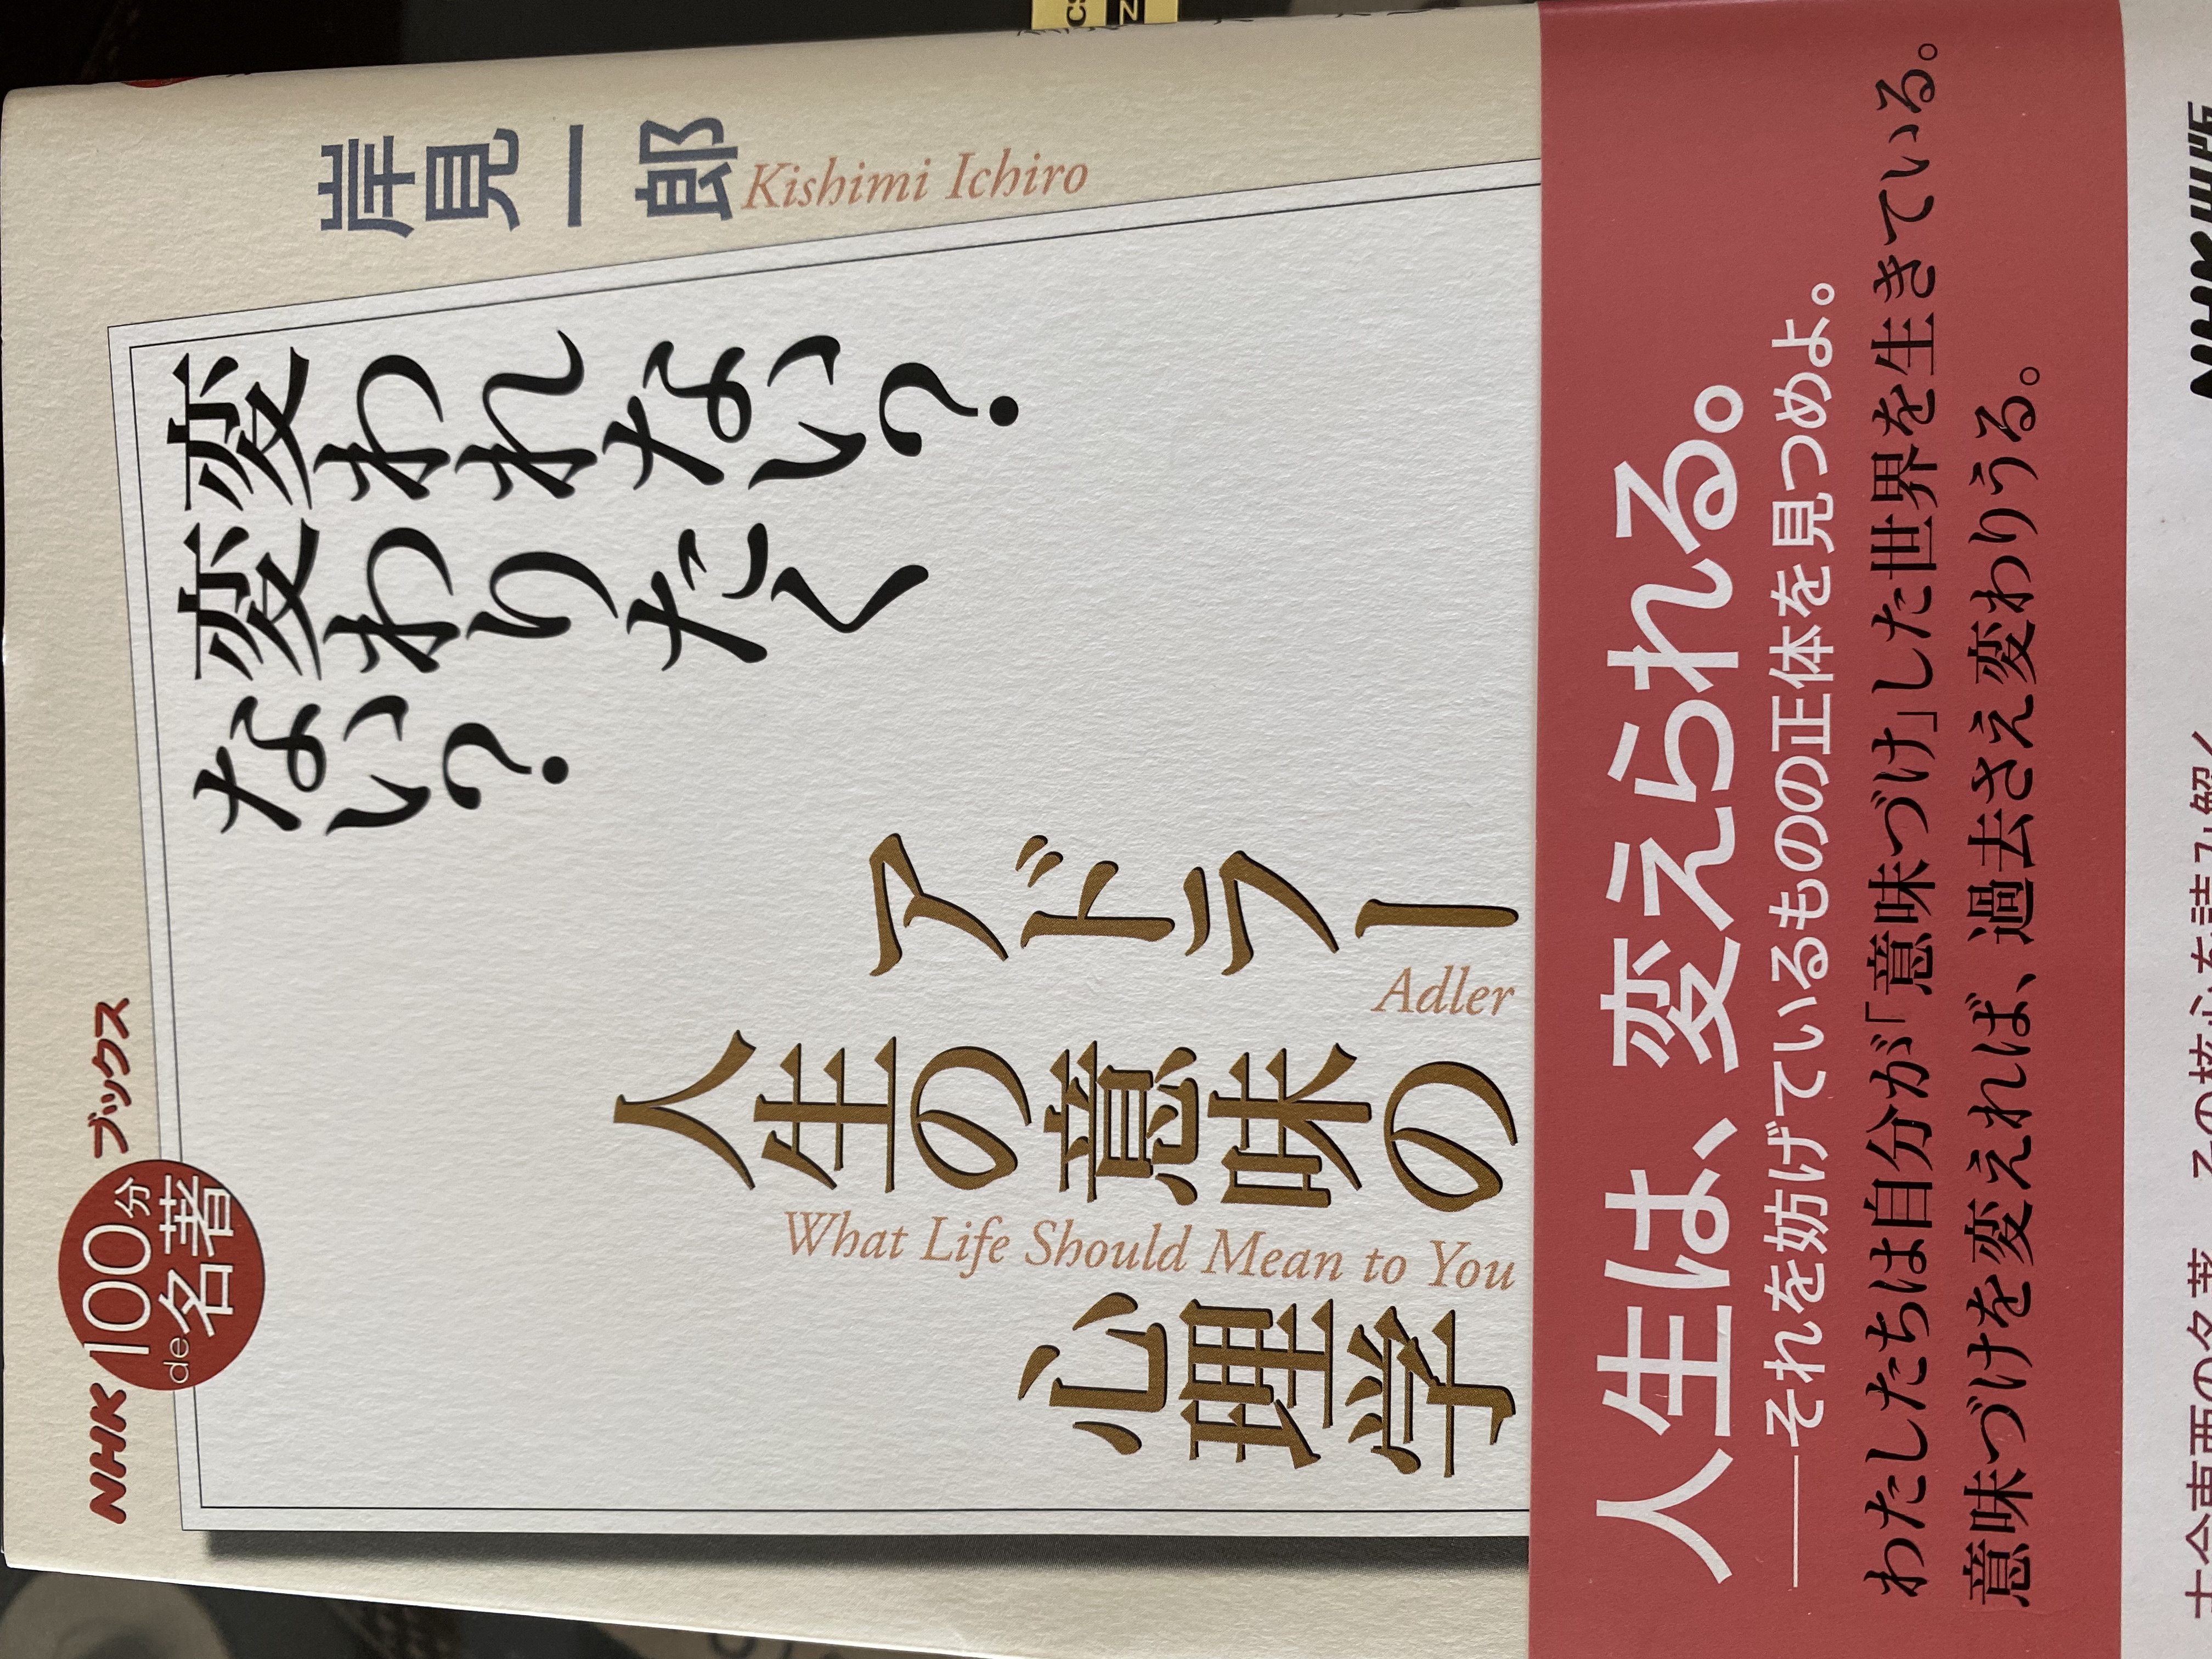 NHK 100分de名著 ブックス
岸見一郎
Kishimi Ichiro
変われない?
変わりたく
ない?
アドラー
Adler
人生の意味の
What Life Should Mean to You
心理学
人生は、変えられる。
──それを妨げているものの正体を見つめよ。
わたしたちは自分が「意味づけ」した世界を生きている。
意味づけを変えれば、過去さえ変わりうる。